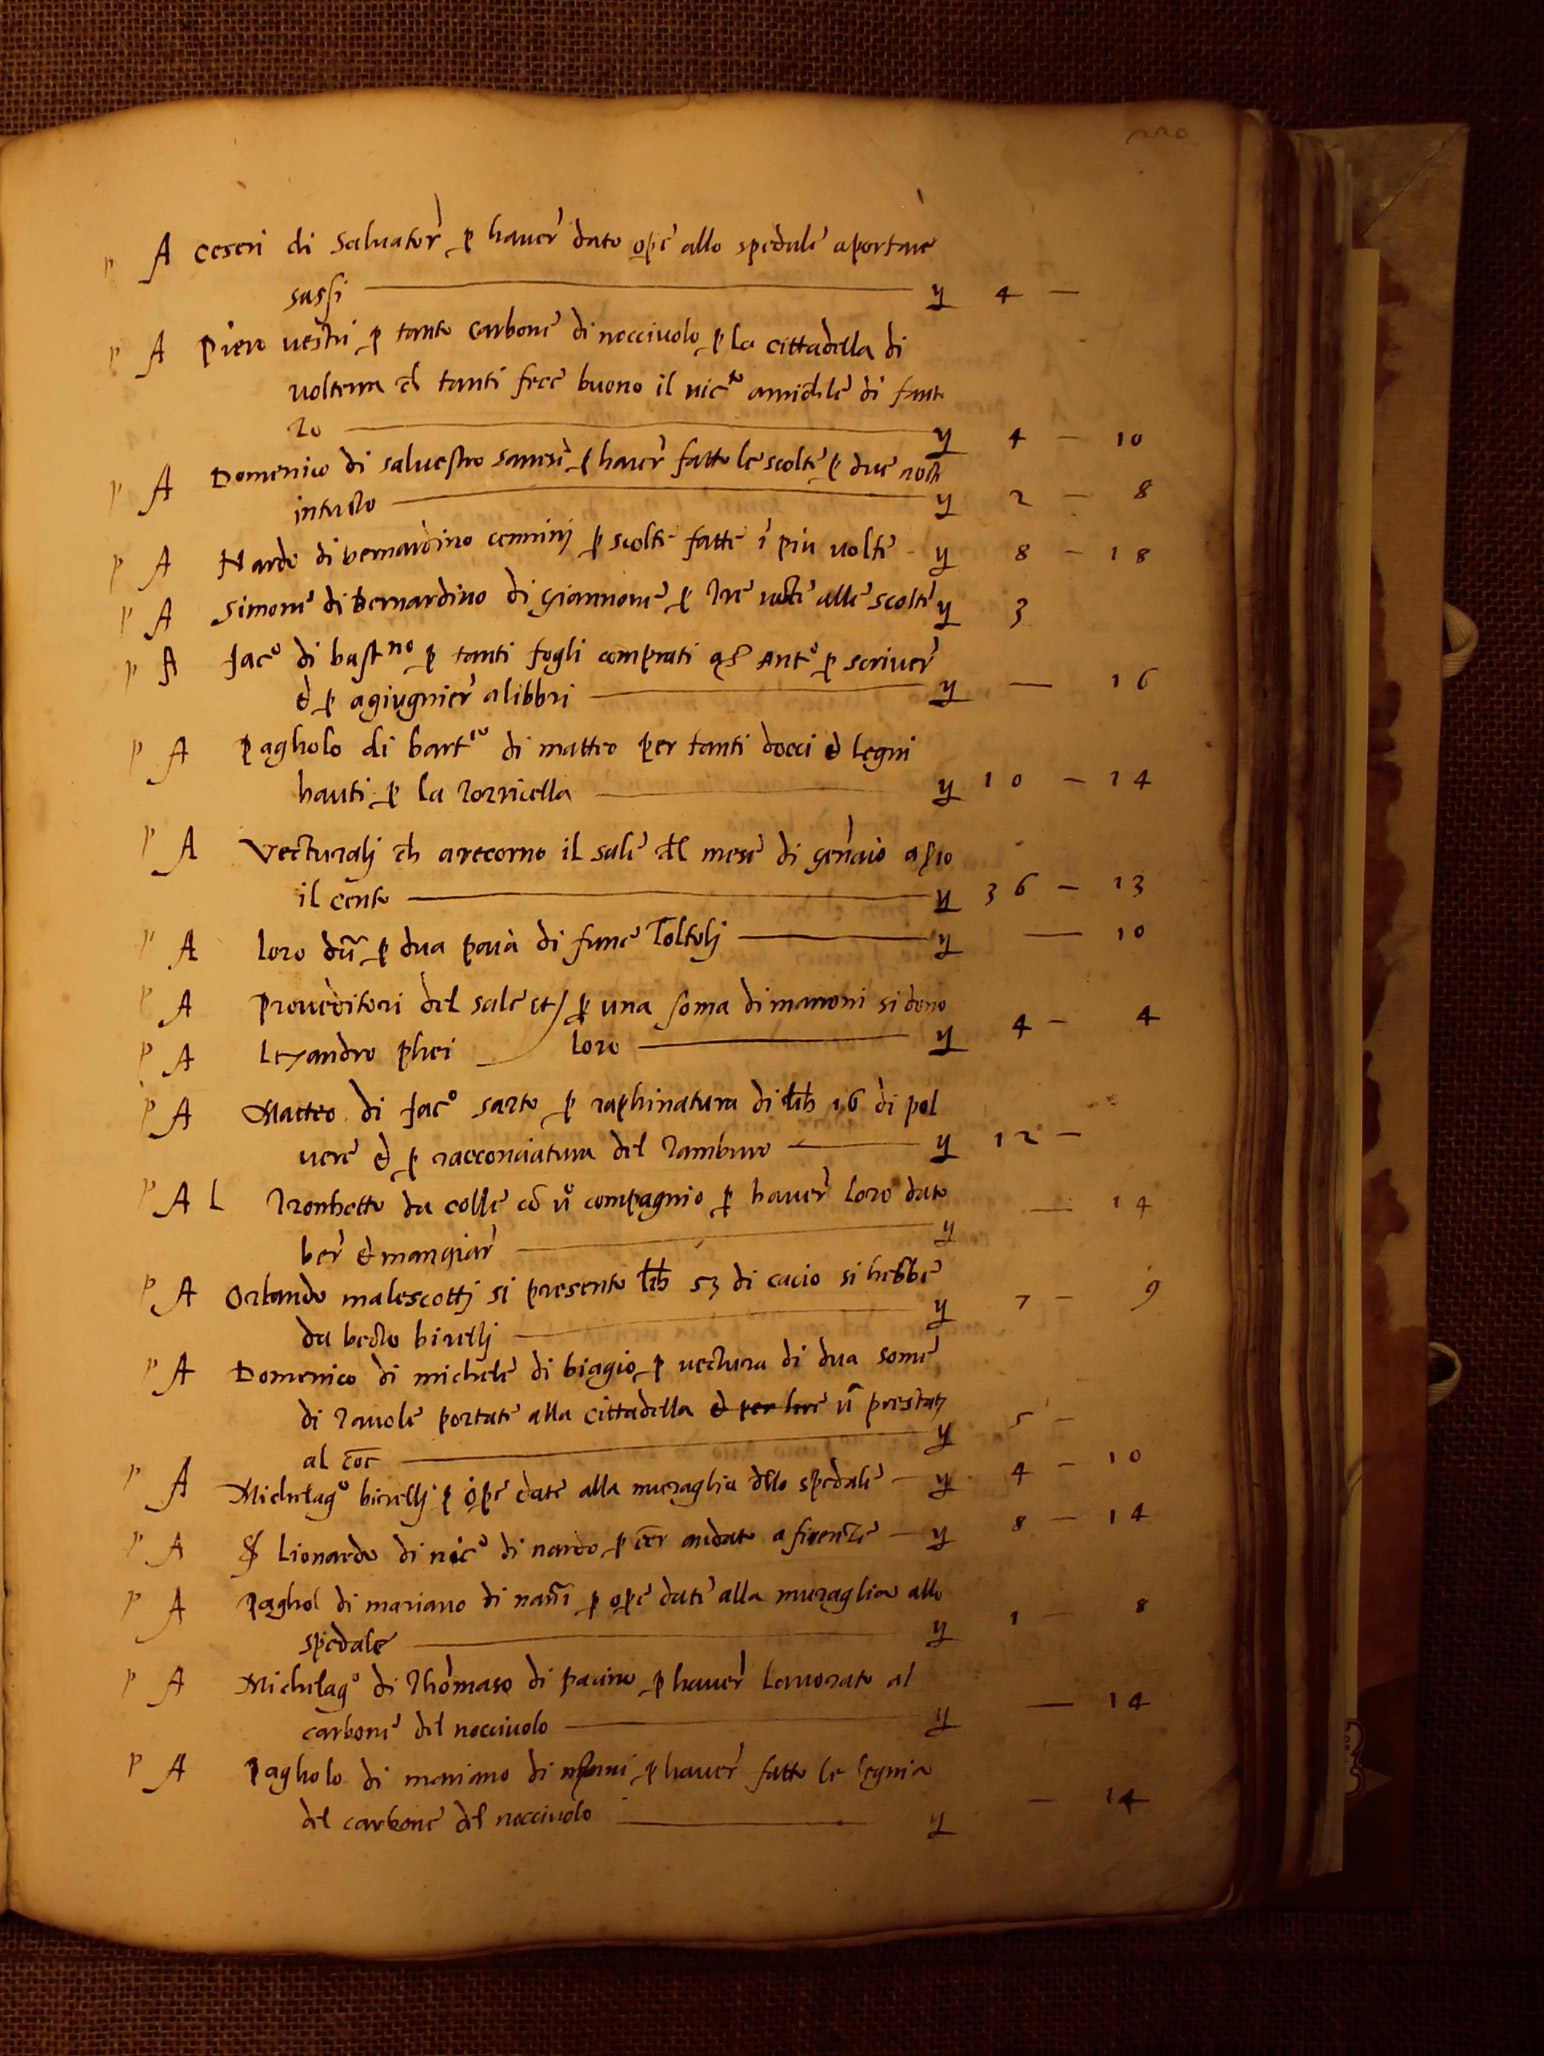 220
p A Ceseri di Salvator' p haver' dato op'e allo spedale aportare
sassi — 4 —
p A Piero vestri p tanto carbone di nocciuolo p la cittadella di
volterra ch tanti fece buono il vic.to amichele di fant
zo — 4 — 10
p A Domenico di salvestro p haver' fatto le scolte p due nocti
intucto — 2 — 8
p A Nardo di bernardino cenninj p scolte fatte i più volte — 8 — 18
p A Simone di Bernardino di Giannone p tre nocte alle scolte 3
p A Jac.o di bast.no p tanti fogli comprati Ant.o p scriver'
et p agiugnier' alibbri — — 16
p A Pagholo di bart.eo di matteo per tanti docci et legni
hauti p la torricella — 10 — 14
p A Vecturalj ch arecorno il sale del mese di gennaio
il cento — 36 — 13
p A loro dn p dua paia di fune toltolj — — 10
p A Proveditori del sale et p una soma di marroni si dono
p A Lexandro phei loro — 4 — 4
p A Matteo di Jac.o sarto p raphinatura di libb 16 di pol
vere et p racconciatura del tamburo — 12 —
p A L Tronbetto da colle co u.o compagnio p haver' loro dato
ber' et mangiar' — — 14
p A Orlando malescottj si presento libb 53 di cacio si hebbe
da becto birellj — 7 — 9
p A Domenico di michele di biagio p vectura di dua some
di tavole portate alla cittadella et per lire u prestatj
al — 5 —
p A Michelag.o birellj p op'e date alla muraglia dello spedale — 4 — 10
p A S Lionardo di nic.o di nardo p eer andato a firenze — 8 — 14
p A Paghol di mariano di nani p op'e date alla muraglia allo
spedale — 1 — 8
p A Michelag.o di Thomaso di pacino p haver' lavorato al
carbone del nocciuolo — — 14
p A Pagholo di mariano di nanni p haver' fatto le legnia
del carbone del nocciuolo — — 14